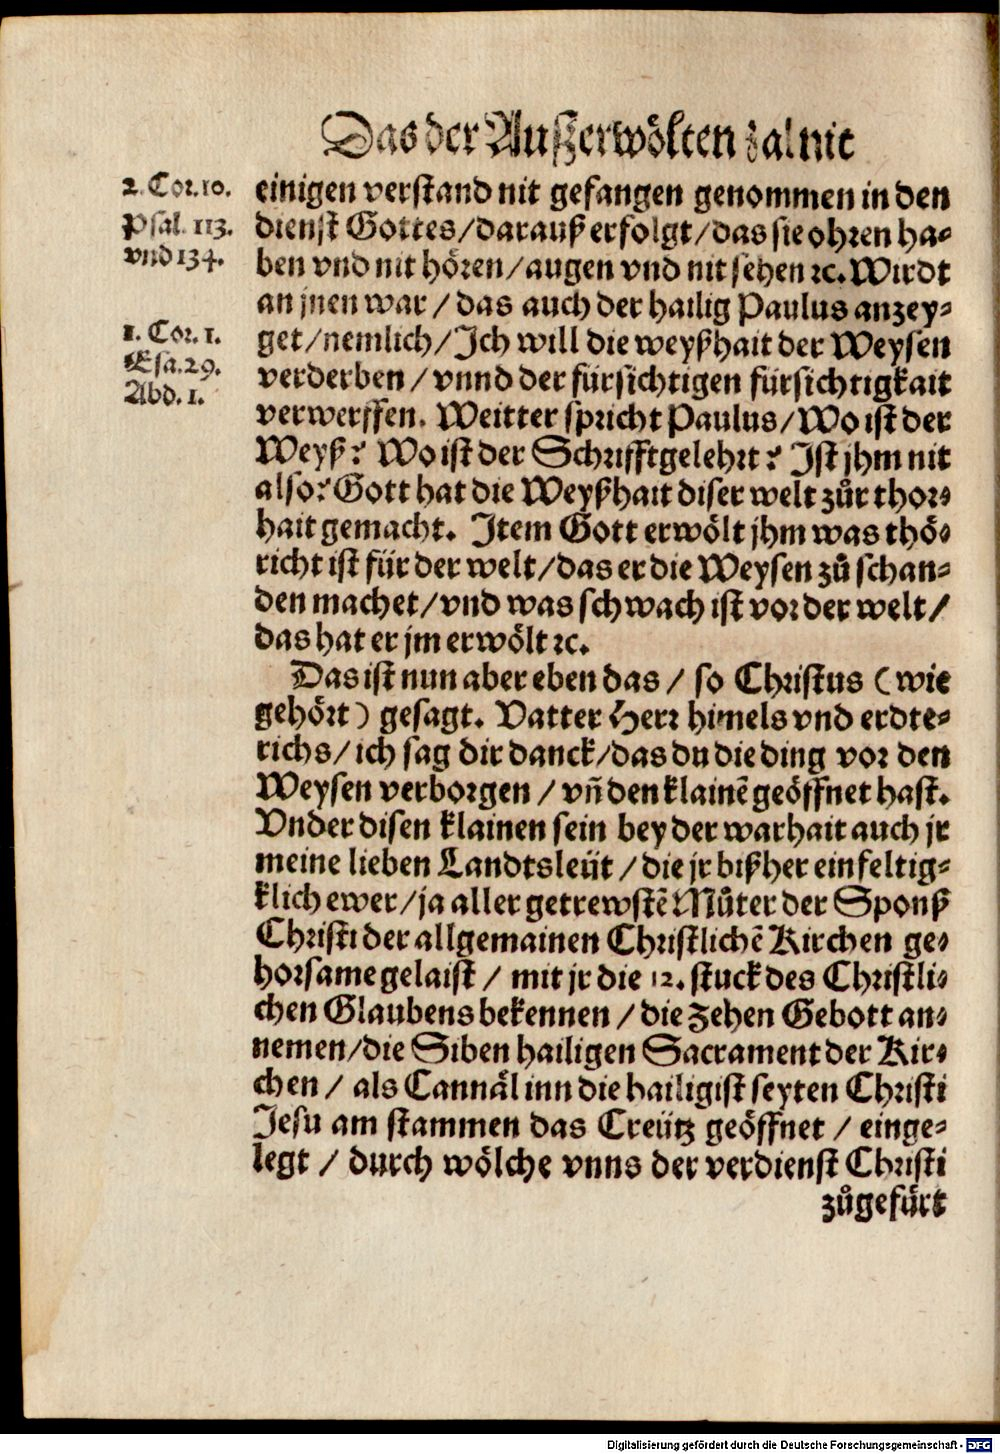 Das der Außerwölten zal nit
2. Cor. 10.
Psal. 113.
vnd 134.
1. Cor. 1.
Esa. 29.
Abd. 1.
einigen verstand nit gefangen genommen in den
dienst Gottes/darauß erfolgt/das sie ohren ha-
ben vnd nit hören/augen vnd nit sehen ꝛc. Wirdt
an jnen war / das auch der hailig Paulus anzey-
get/nemlich/Ich will die weyßhait der Weysen
verderben / vnnd der fürsichtigen fürsichtigkait
verwerffen. Weitter spricht Paulus/Wo ist der
Weyß? Wo ist der Schrifftgelehrt? Ist jhm nit
also? Gott hat die Weyßhait diser welt zůr thor-
hait gemacht. Item Gott erwölt jhm was thö-
richt ist für der welt/das er die Weysen zů schan-
den machet/vnd was schwach ist vor der welt/
das hat er jm erwölt ꝛc.
Das ist nun aber eben das / so Christus (wie
gehört) gesagt. Vatter Herr himels vnd erdte-
richs/ich sag dir danck/das du die ding vor den
Weysen verborgen / vn̄ den klainē geöffnet hast.
Vnder disen klainen sein bey der warhait auch jr
meine lieben Landtsleüt / die jr bißher einfeltig-
klich ewer/ja aller getrewstē Můter der Sponß
Christi der allgemainen Christlichē Kirchen ge-
horsame gelaist / mit jr die 12. stuck des Christli-
chen Glaubens bekennen / die Zehen Gebott an-
nemen/die Siben hailigen Sacrament der Kir-
chen / als Cannäl inn die hailigist seyten Christi
Jesu am stammen das Creütz geöffnet / einge-
legt / durch wölche vnns der verdienst Christi
zůgefürt
Digitalisierung gefördert durch die Deutsche Forschungsgemeinschaft - DFG